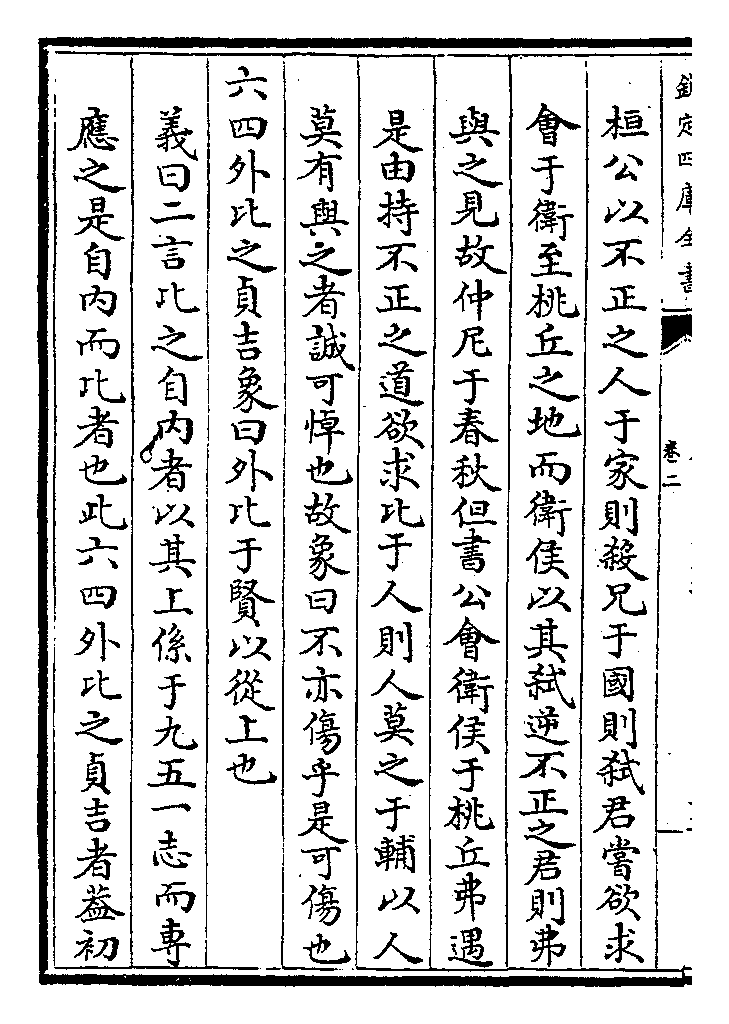 欽定四庫全書
卷二
桓公以不正之人于家則殺兄于國則弑君嘗欲求
會于衛至桃丘之地而衛侯以其弑逆不正之君則弗
與之見故仲尼于春秋但書公會衛侯于桃丘弗遇
是由持不正之道欲求比于人則人莫之于輔以人
莫有與之者誠可悼也故象曰不亦傷乎是可傷也
六四外比之貞吉象曰外比于賢以從上也
義曰二言比之自内者以其上係于九五一志而專
應之是自内而比者也此六四外比之貞吉者葢初